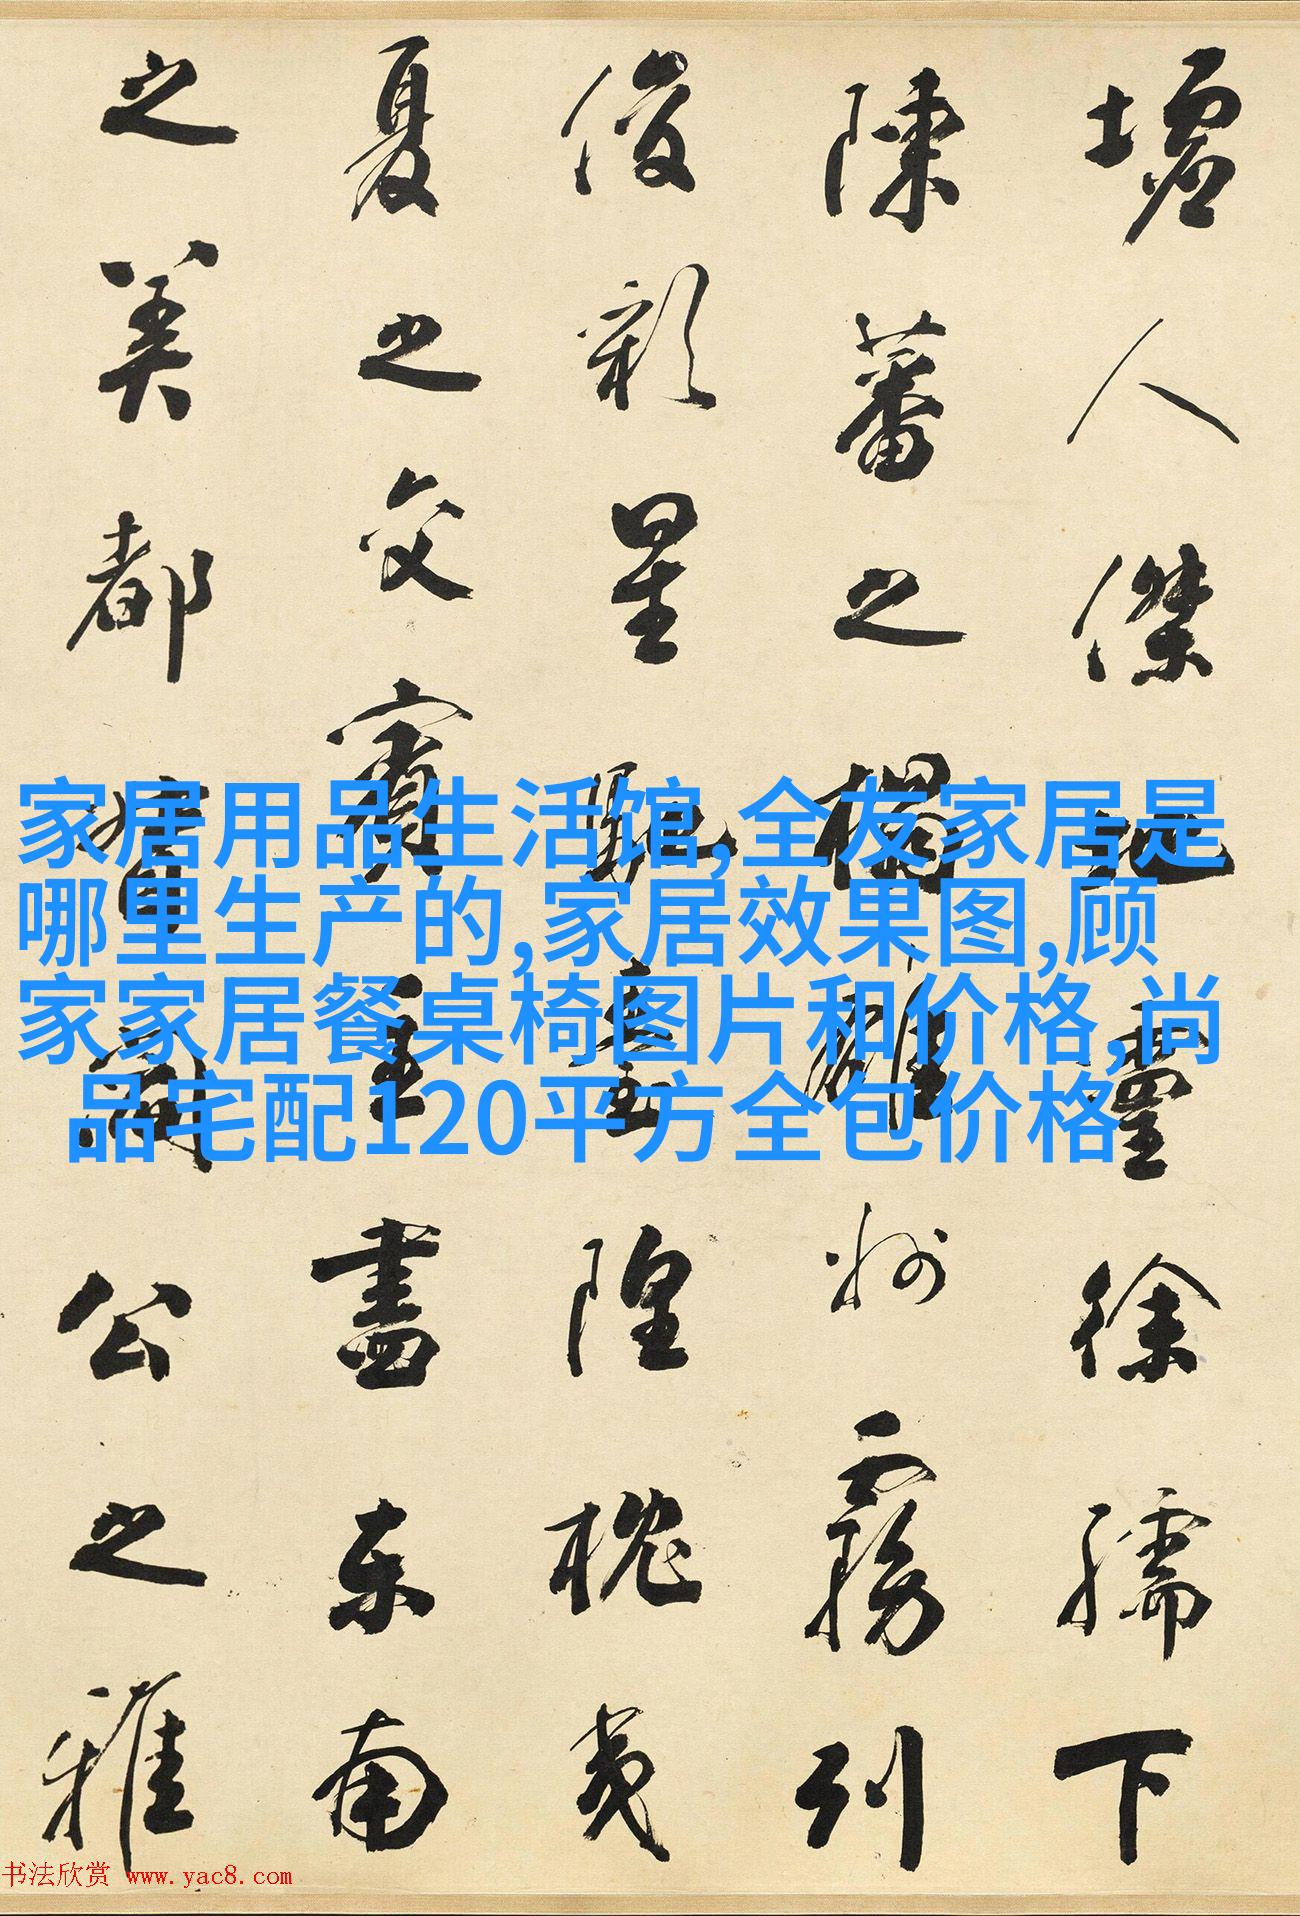 墟人傑地靈徐孺下
陳蕃之榻雄州霧列
俊彩星馳臺隍枕夷
夏之交賓主盡東南
之美都督閻公之雅
家居用品生活馆,全友家居是
哪里生产的,家居效果图,顾
家家居餐桌椅图片和价格,尚
品宅配120平方全包价格
书法欣赏 www.yac8.com